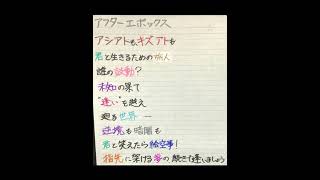 アフターエポックス
アシアトも、キズアトも
君と生きるための旅人
誰の鼓動?
未知の果て
"逢い"を越え
廻る世界 ―
逆境も暗闇も
君と笑えたら絵空事!
指先に架ける夢の続きで逢いましょう